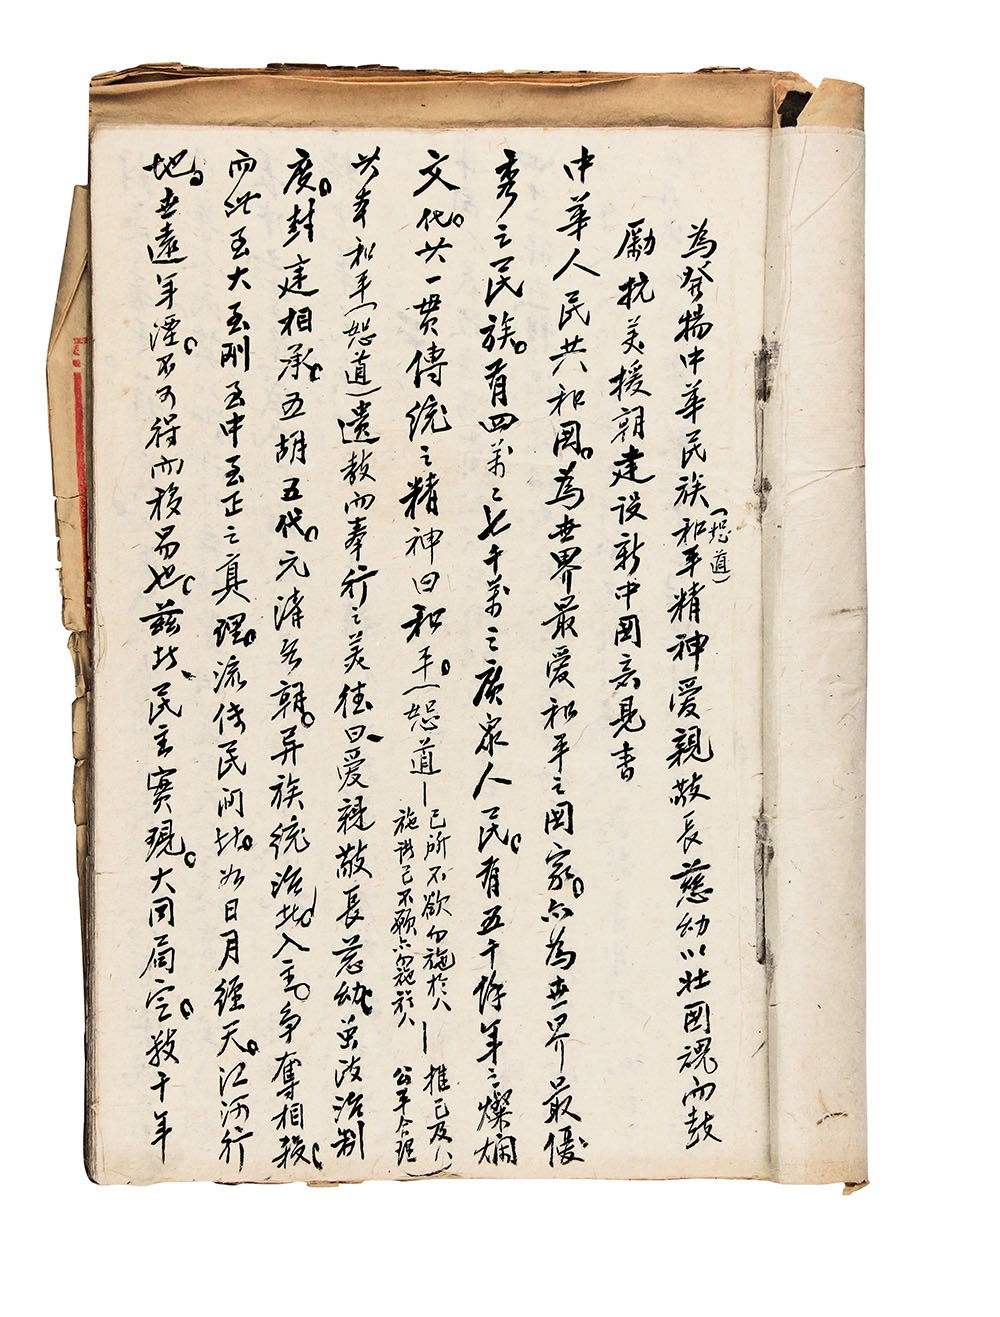 為發揚中華民族和平(恕道)精神愛親敬長慈幼以壯國魂而鼓
勵抗美援朝建设新中國意見書
中華人民共和國。為世界最爱和平之國家。亦為世界最優
秀之民族。有四萬〻七千萬之廣衆人民。有五千馀年之燦爛
文化。其一貫傳统之精神曰和平。(恕道—己所不欲勿施於人
施諸己不願亦勿施於人—推己及人
公平合理
其本和平(恕道)遺教而奉行之美德曰、愛親敬長慈幼。虽政治制
度。封建相承。五胡五代。元清各朝。异族统治此入主。争奪相殺。
而此至大至刚至中至正之真理。流传民间此。如日月經天。江河行
地。世遠年湮。不可得而移易也。兹此、民主實現。大同局定。数千年